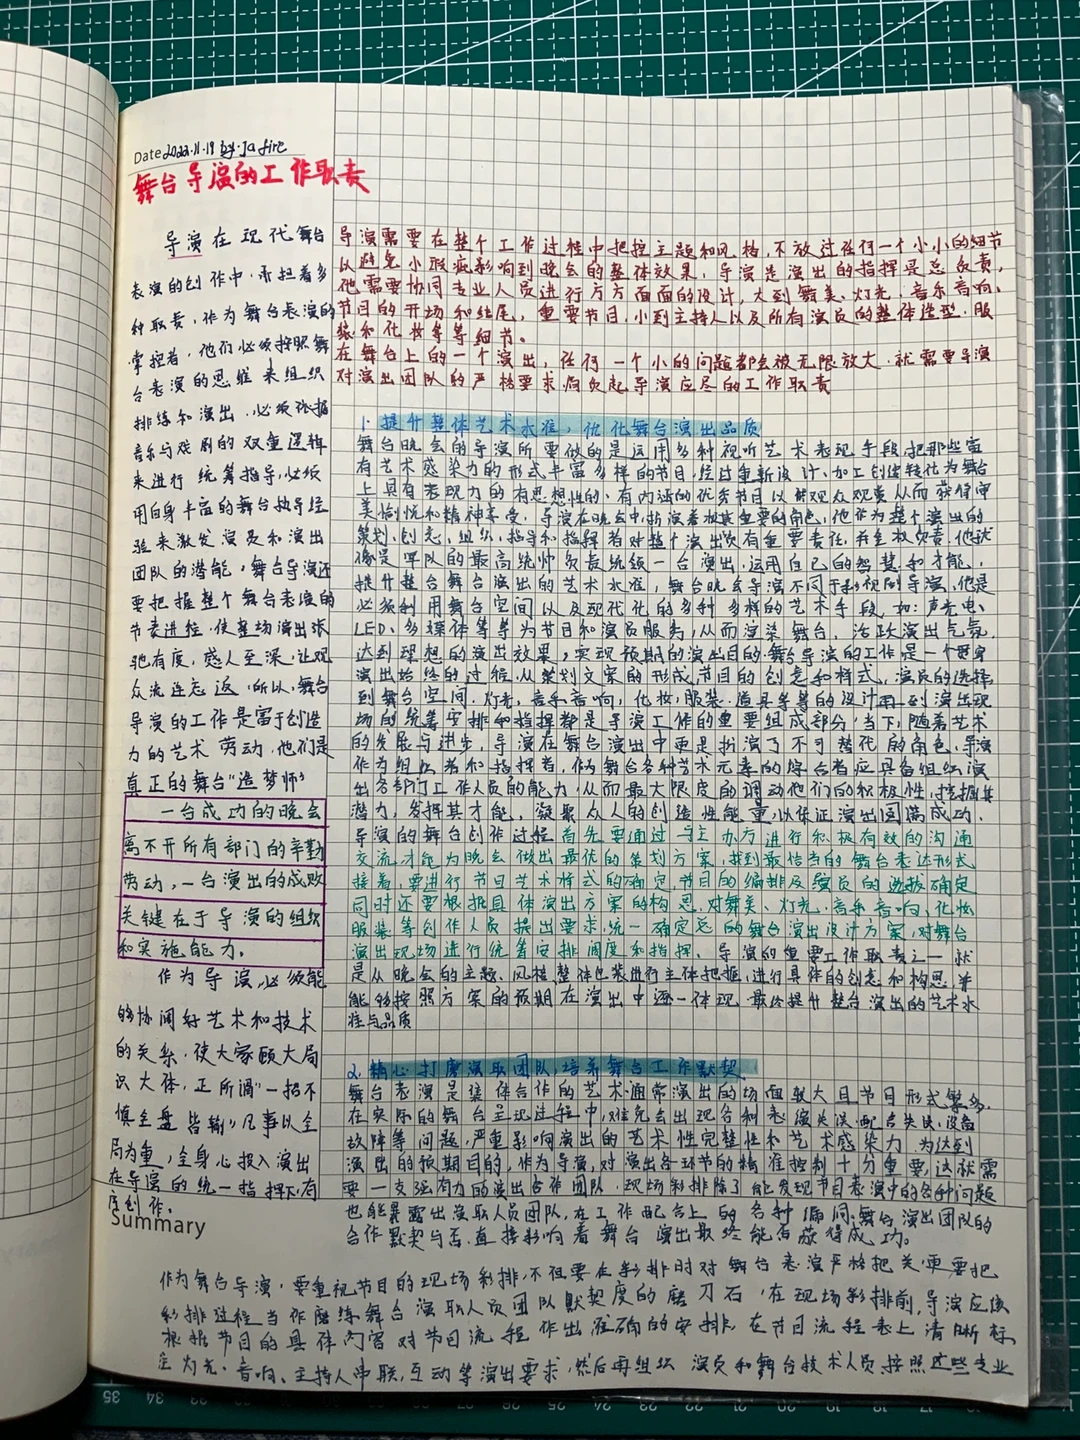 Date 2022.11.19
舞台导演的工作职责
导演在现代舞台
表演的创作中，承担着多
种职责，作为舞台表演的
掌控者，他们必须按照舞
台表演的思维来组织
排练和演出，必须依据
音乐与戏剧的双重逻辑
来进行统筹指导，必须
用自身丰富的舞台执导经
验来激发演员和演出
团队的潜能，舞台导演还
要把握整个舞台表演的
节奏进程，使整场演出张
弛有度，感人至深，让观
众流连忘返，所以，舞台
导演的工作是富于创造
力的艺术劳动，他们是
真正的舞台“造梦师”
一台成功的晚会
离不开所有部门的辛勤
劳动，一台演出的成败
关键在于导演的组织
和实施能力。
作为导演，必须能
够协调好艺术和技术
的关系，使大家顾大局
识大体，正所谓“一招不
慎全盘皆输”凡事以全
局为重，全身心投入演出
在导演的统一指挥下，有
序创作。
导演需要在整个工作过程中把控主题和风格，不放过任何一个小小的细节
以避免小瑕疵影响到晚会的整体效果，导演是演出的指挥是总负责，
他需要协同专业人员进行方方面面的设计，大到舞美、灯光、音乐音响、
节目的开场和结尾，重要节目，小到主持人以及所有演员的整体造型、服
装和化妆等等细节。
在舞台上的一个演出，任何一个小的问题都会被无限放大，就需要导演
对演出团队的严格要求，肩负起导演应尽的工作职责
1. 提升整体艺术水准，优化舞台演出品质
舞台晚会的导演所要做的是运用多种视听艺术表现手段，把那些富
有艺术感染力的形式丰富多样的节目，经过重新设计、加工创造转化为舞台
上具有表现力的有思想性的、有内涵的优秀节目以供观众观赏从而获得审
美愉悦和精神享受，导演在晚会中，扮演着极其重要的角色，他作为整个演出的
策划、创意、组织、指导和指挥者对整个演出负有重要责任，并全权负责，他就
像是军队的最高统帅负责统领一台演出，运用自己的智慧和才能，
提升整台舞台演出的艺术水准，舞台晚会导演不同于影视剧导演，他是
必须利用舞台空间以及现代化的多种多样的艺术手段，如：声光电、
LED、多媒体等等为节目和演员服务，从而渲染舞台，活跃演出气氛，
达到理想的演出效果，实现预期的演出目的，舞台导演的工作是一个贯穿
演出始终的过程，从策划文案的形成，节目的创意和样式，演员的选择
到舞台空间、灯光，音乐音响，化妆，服装、道具等等的设计再到演出现
场的统筹安排和指挥都是导演工作的重要组成部分，当下，随着艺术
的发展与进步，导演在舞台演出中更是扮演了不可替代的角色，导演
作为组织者和指挥者，作为舞台各种艺术元素的综合者应具备组织演
出各部门工作人员的能力，从而最大限度的调动他们的积极性，挖掘其
潜力，发挥其才能，凝聚众人的创造性能量，以保证演出圆满成功，
导演的舞台创作过程首先要通过与主办方进行积极有效的沟通
交流，才能为晚会做出最优的策划方案，找到最恰当的舞台表达形式
接着，要进行节目艺术样式的确定，节目的编排及演员的选拔确定
同时还要根据具体演出方案的构思，对舞美、灯光、音乐音响、化妆
服装等创作人员提出要求，统一确定总的舞台演出设计方案，对舞台
演出现场进行统筹安排调度和指挥，导演的重要工作职责之一就
是从晚会的主题、风格，整体包装进行主体把握，进行具体的创意和构思，并
能够按照方案的预期在演出中逐一体现，最终提升整台演出的艺术水
准与品质
2. 精心打磨演职团队，培养舞台工作默契
舞台表演是集体合作的艺术，通常演出的场面较大且节目形式繁多，
在实际的舞台呈现过程中，难免会出现各种表演失误，配合失误，设备
故障等问题，严重影响演出的艺术性完整性和艺术感染力，为达到
演出的预期目的，作为导演，对演出各环节的精准控制十分重要，这就需
要一支强有力的演出合作团队，现场彩排除了能发现节目表演中的各种问题
也能暴露出演职人员团队，在工作配合上的各种漏洞，舞台演出团队的
合作默契与否，直接影响着舞台演出最终能否获得成功。
Summary
作为舞台导演，要重视节目的现场彩排，不但要在彩排时对舞台表演严格把关，更要把
彩排过程当作磨练舞台演职人员团队默契度的磨刀石，在现场彩排前，导演应该
根据节目的具体内容对节目流程作出准确的安排，在节目流程表上清晰标
注灯光、音响、主持人串联，互动等演出要求，然后再组织演员和舞台技术人员按照这些专业